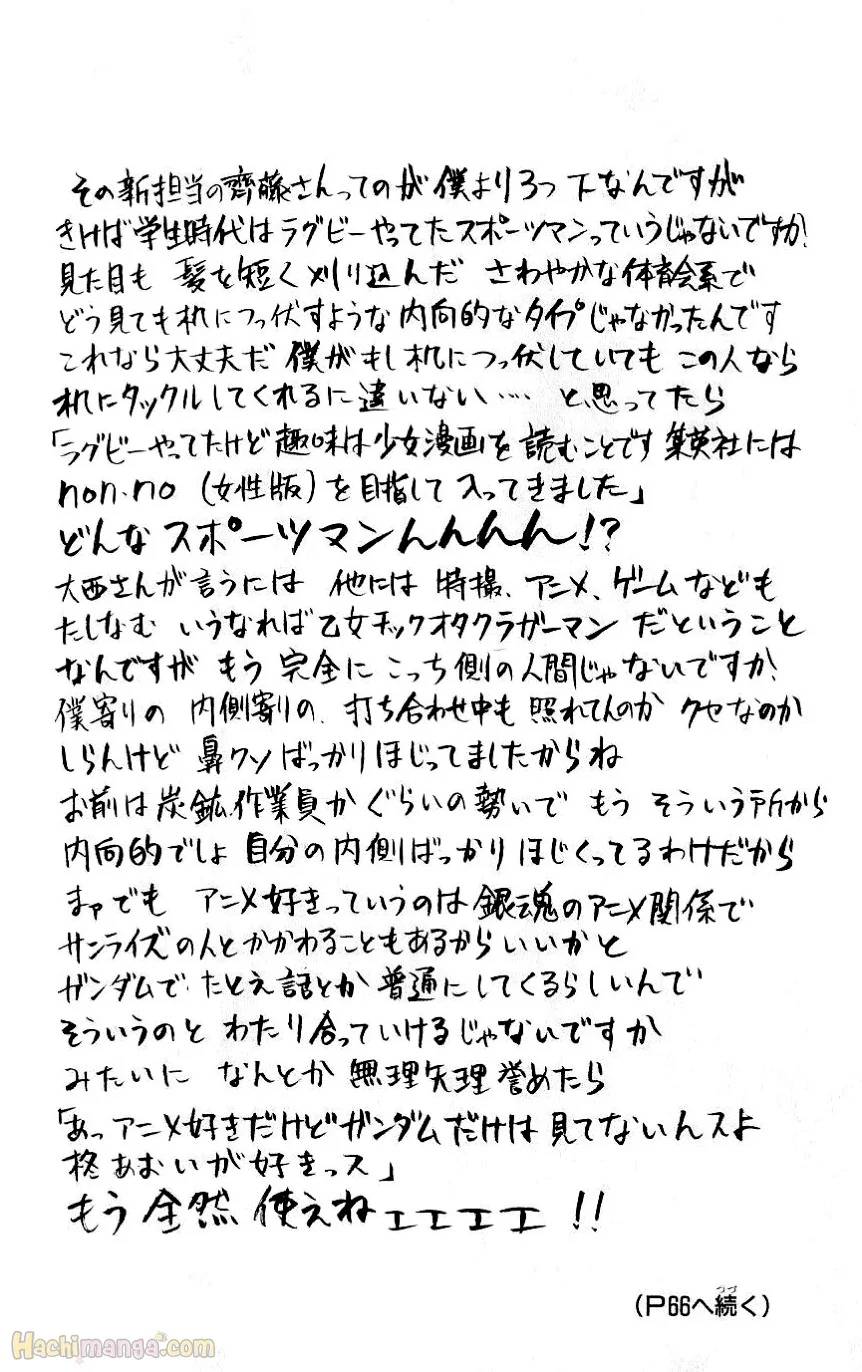 その新担当の齊藤さんってのが 僕より3つ 下なんですが
きけば 学生時代は ラグビーやってたスポーツマンっていうじゃないですか!
見た目も 髪を短く刈り込んだ さわやかな体育会系で
どう見ても机につっ伏すような内向的なタイプじゃなかったんです
これなら大丈夫だ 僕がもし机につっ伏していても この人なら
机にタックルしてくれるに違いない… と思ってたら
「ラグビーやってたけど趣味は少女漫画を読むことです 集英社には
non・no (女性版) を目指して入ってきました」
どんなスポーツマンんんんん!?
大西さんが言うには 他には 特撮、アニメ、ゲームなども
たしなむ いうなれば乙女チックオタクラガーマン だということ
なんですが もう 完全に こっち側の人間じゃないですか!
僕寄りの 内側寄りの、打ち合わせ中も 照れてんのか クセなのか
しらんけど 鼻クソばっかりほじってましたからね
お前は炭鉱作業員か ぐらいの勢いで もう そういう所から
内向的でしょ 自分の内側ばっかりほじくってるわけだから
まァでも アニメ好きっていうのは銀魂のアニメ関係で
サンライズの人とかかわることもあるからいいかと
ガンダムで、たとえ話とか 普通にしてくるらしいんで
そういうのと わたり合っていけるじゃないですか
みたいに なんとか 無理矢理誉めたら
「あっアニメ好きだけどガンダムだけは見てないんスよ
柊あおいが好きっス」
もう全然使えねェエエエ!!
(P66へ続く)
つづ
Hachimanga.com